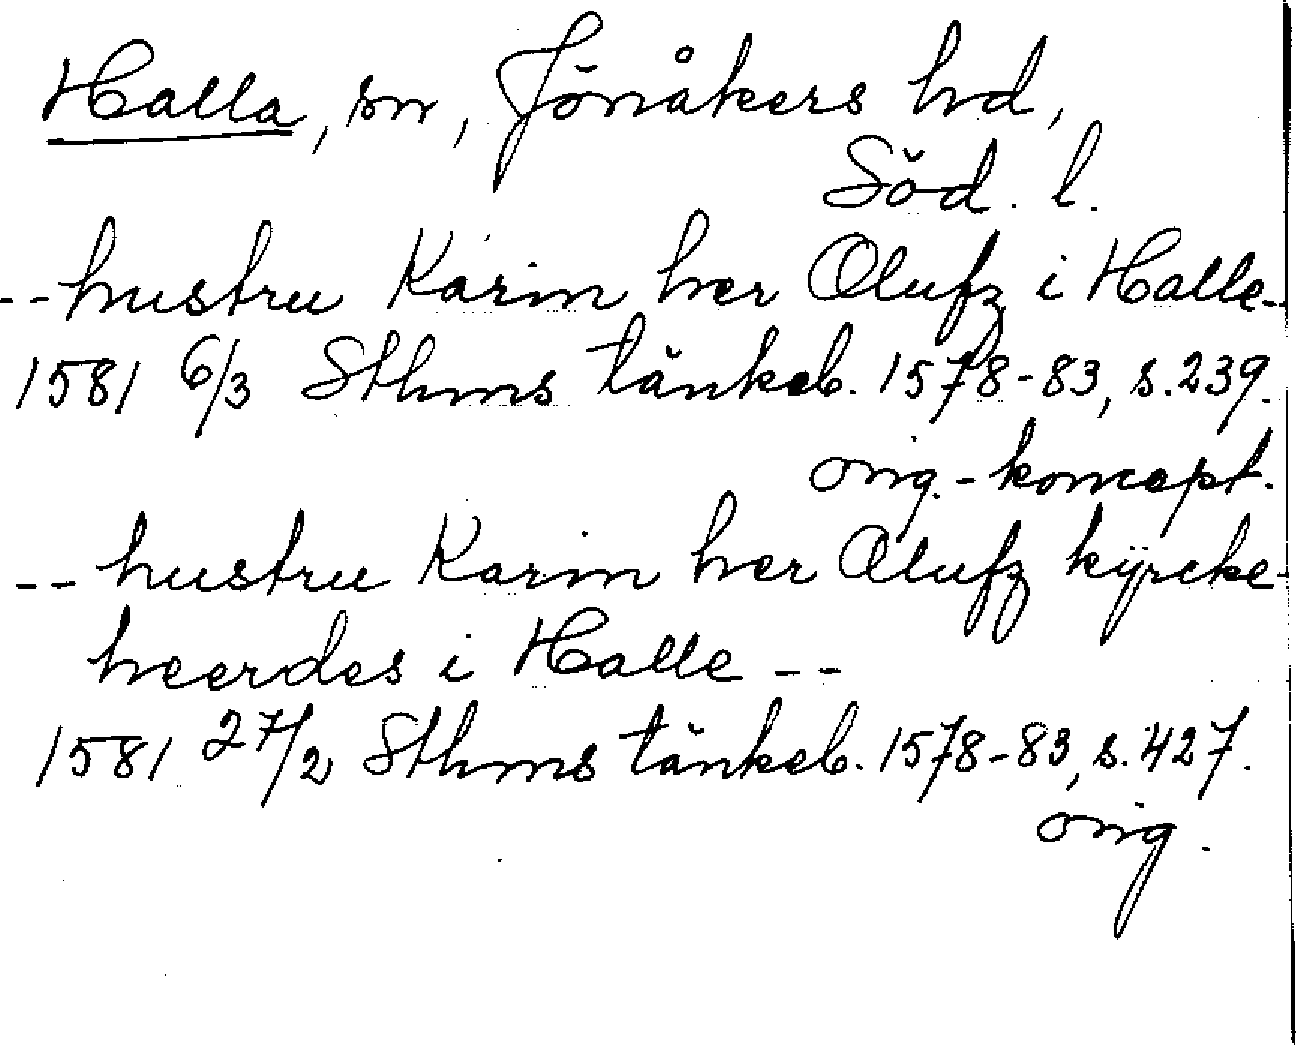 Halla, sn, Jönåkers hd,
Söd. l.
-- hustru Karin her Olufz i Halle --
1581 6/3 Sthms tänkeb. 1578-83, s. 239.
orig.-koncept.
-- hustru Karin her Olufz kÿrcke-
heerdes i Halle --
1581 27/2 Sthms tänkeb. 1578-83, s. 427.
orig.